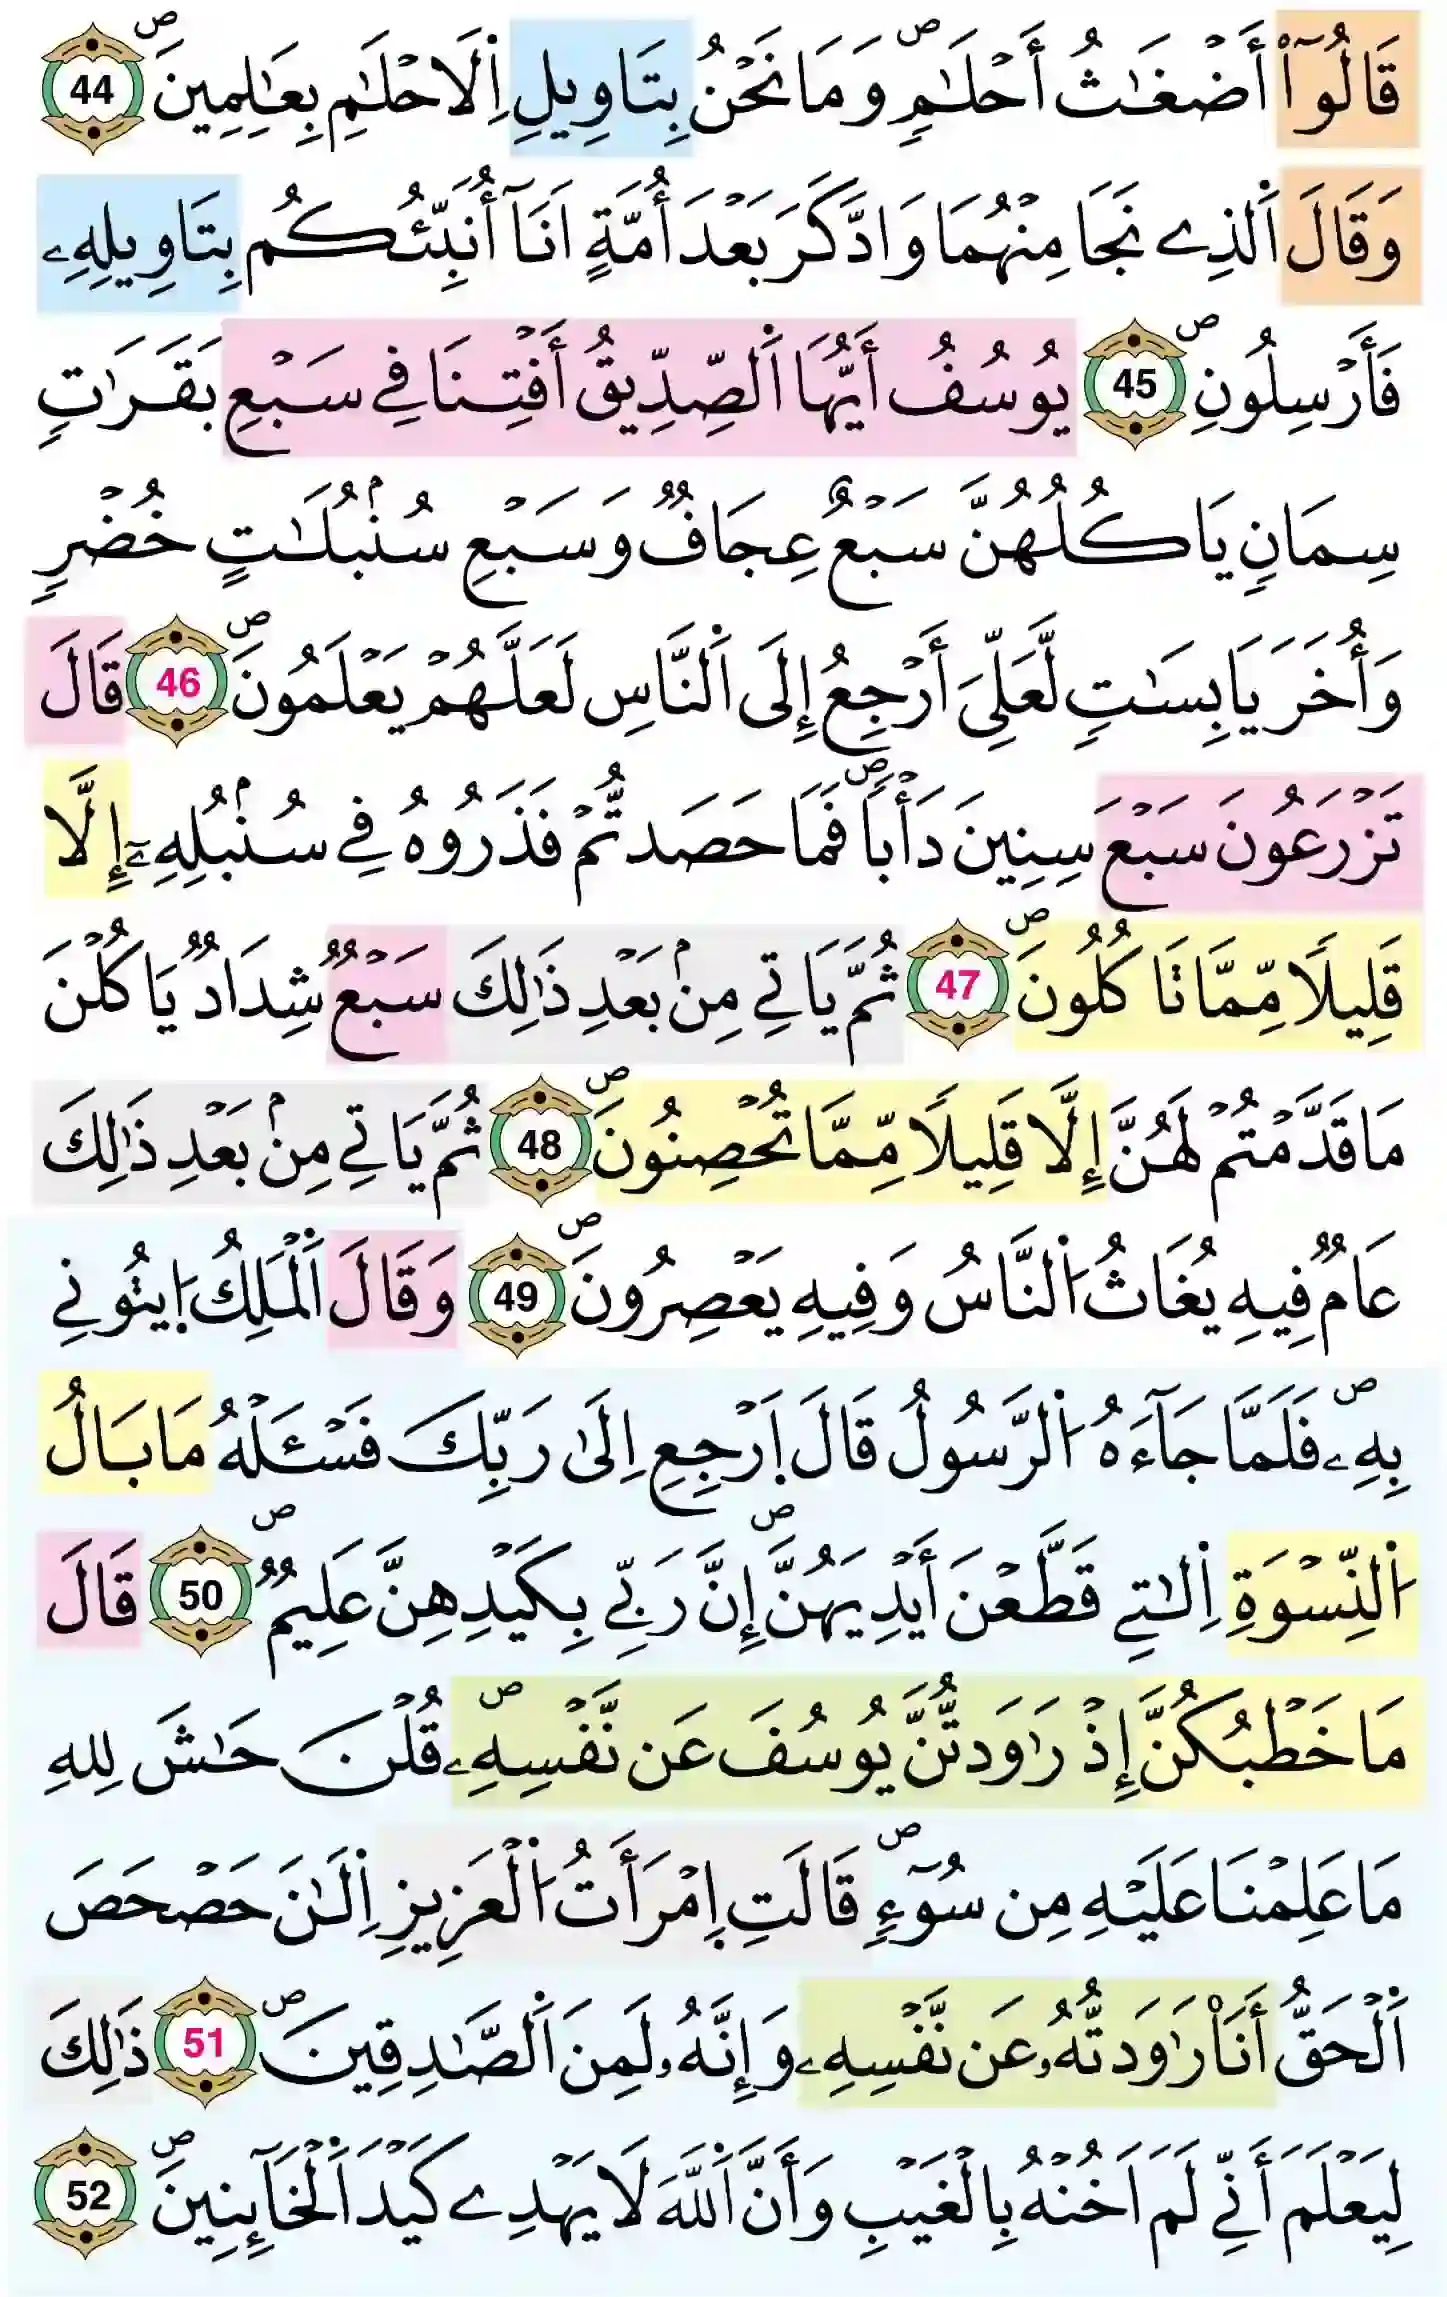 قَالُوٓاْ أَضْغَٰثُ أَحْلَٰمٖۖ وَمَا نَحْنُ بِتَاوِيلِ اِ۬لَاحْلَٰمِ بِعَٰلِمِينَۖ 44
وَقَالَ اَ۬لذِے نَجَا مِنْهُمَا وَادَّكَرَ بَعْدَ أُمَّةٍ اَنَآ أُنَبِّئُكُم بِتَاوِيلِهِۦ
فَأَرْسِلُونِۖ 45 يُوسُفُ أَيُّهَا اَ۬لصِّدِّيقُ أَفْتِنَا فِے سَبْعِ بَقَرَٰتٖ
سِمَانٖ يَاكُلُهُنَّ سَبْعٌ عِجَافٞ وَسَبْعِ سُنۢبُلَٰتٍ خُضْرٖ
وَأُخَرَ يَابِسَٰتٖ لَّعَلِّيَ أَرْجِعُ إِلَى اَ۬لنَّاسِ لَعَلَّهُمْ يَعْلَمُونَۖ 46 قَالَ
تَزْرَعُونَ سَبْعَ سِنِينَ دَأْباٗۖ فَمَا حَصَدتُّمْ فَذَرُوهُ فِے سُنۢبُلِهِۦٓ إِلَّا
قَلِيلٗا مِّمَّا تَاكُلُونَۖ 47 ثُمَّ يَاتِے مِنۢ بَعْدِ ذَٰلِكَ سَبْعٞ شِدَادٞ يَاكُلْنَ
مَا قَدَّمْتُمْ لَهُنَّ إِلَّا قَلِيلٗا مِّمَّا تُحْصِنُونَۖ 48 ثُمَّ يَاتِے مِنۢ بَعْدِ ذَٰلِكَ
عَامٞ فِيهِ يُغَاثُ اُ۬لنَّاسُ وَفِيهِ يَعْصِرُونَۖ 49 وَقَالَ اَ۬لْمَلِكُ اُ۪يتُونِے
بِهِۦۖ فَلَمَّا جَآءَهُ اُ۬لرَّسُولُ قَالَ اَ۪رْجِعِ اِلَىٰ رَبِّكَ فَسْـَٔلْهُ مَا بَالُ
اُ۬لنِّسْوَةِ اِ۬لٰتِے قَطَّعْنَ أَيْدِيَهُنَّۖ إِنَّ رَبِّے بِكَيْدِهِنَّ عَلِيمٞۖ 50 قَالَ
مَا خَطْبُكُنَّ إِذْ رَٰوَدتُّنَّ يُوسُفَ عَن نَّفْسِهِۦۖ قُلْنَ حَٰشَ لِلهِ
مَا عَلِمْنَا عَلَيْهِ مِن سُوٓءٖۖ قَالَتِ اِ۪مْرَأَتُ اُ۬لْعَزِيزِ اِ۬لَٰنَ حَصْحَصَ
اَ۬لْحَقُّ أَنَا۠ رَٰوَدتُّهُۥ عَن نَّفْسِهِۦ وَإِنَّهُۥ لَمِنَ اَ۬لصَّٰدِقِينَۖ 51 ذَٰلِكَ
لِيَعْلَمَ أَنِّے لَمَ اَخُنْهُ بِالْغَيْبِ وَأَنَّ اَ۬للَّهَ لَا يَهْدِے كَيْدَ اَ۬لْخَآئِنِينَۖ 52